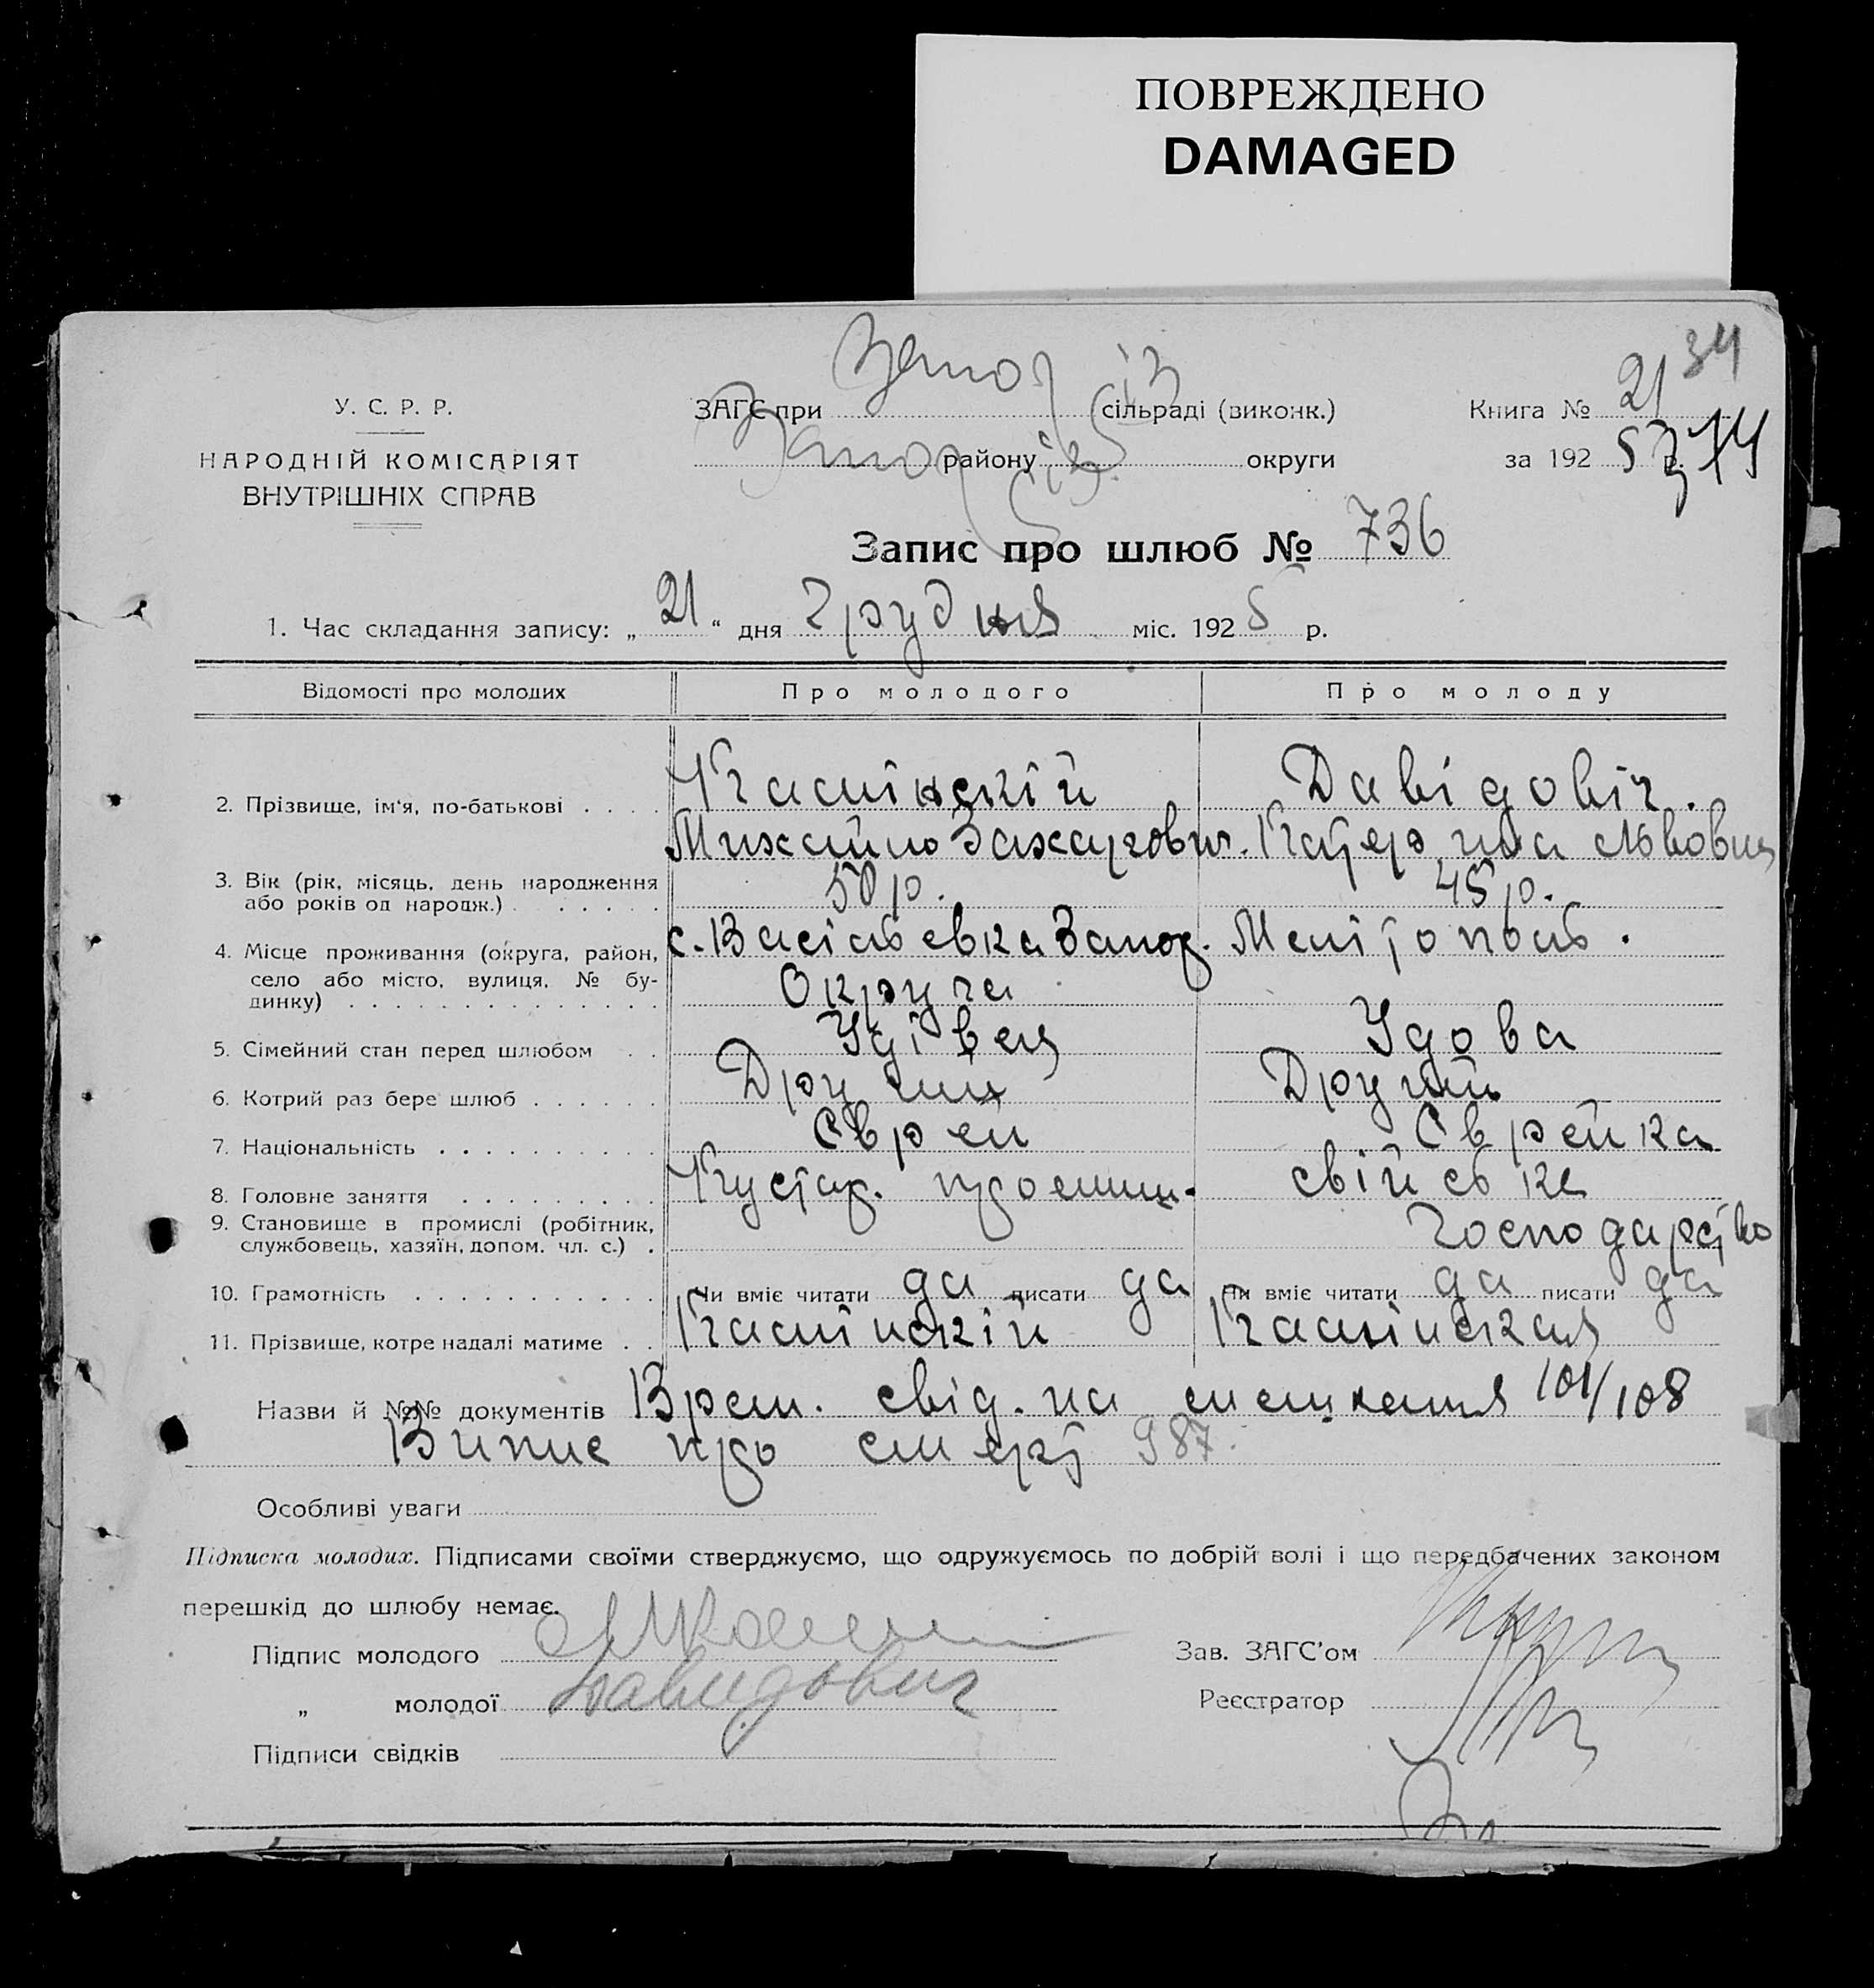 ПОВРЕЖДЕНО
DAMAGED
34
У. С. Р. Р.
НАРОДНІЙ КОМІСАРІЯТ
ВНУТРІШНІХ СПРАВ
ЗАГС при сільраді (виконк.)
району округи
Книга № 21
за 1925 р. 74
Запис про шлюб № 736
1. Час складання запису: „21“ дня Грудня міс. 1925 р.
Відомості про молодих Про молодого Про молоду
2. Прізвище, ім'я, по-батькові . . . . Камінскій Давідовіч.
Михайло Захарович. Катерина Львовна
3. Вік (рік, місяць, день народження або років од народж.) . . . . . . 50 р. 45 р.
4. Місце проживання (округа, район, село або місто, вулиця, № будинку) . . . . . . . . . . . . . . с. Васільевка Запор. Округа Мелітополь.
5. Сімейний стан перед шлюбом . . Удівец Удова
6. Котрий раз бере шлюб . . . . . . Другий Другий
7. Національність . . . . . . . . . . Єврей Єврейка
8. Головне заняття . . . . . . . . . Кустар. промиш. свійське
господарство
9. Становище в промислі (робітник, службовець, хазяїн, допом. чл. с.) .
10. Грамотність . . . . . . . . . . . Чи вміє читати да писати да Чи вміє читати да писати да
11. Прізвище, котре надалі матиме . . Камінскій Камінская
Назви й №№ документів Врем. свід. на мешкання 101/108
Випис про смерт 987.
Особливі уваги
Підписка молодих. Підписами своїми стверджуємо, що одружуємось по добрій волі і що передбачених законом
перешкід до шлюбу немає.
Підпис молодого
„ молодої Давидович
Підписи свідків
Зав. ЗАГС'ом
Реєстратор